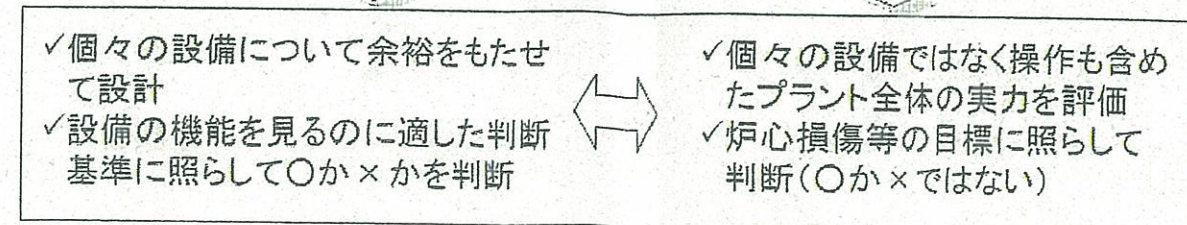 ✓個々の設備について余裕をもたせ
て設計
✓設備の機能を見るのに適した判断
基準に照らして〇か×かを判断
✓個々の設備ではなく操作も含め
たプラント全体の実力を評価
✓炉心損傷等の目標に照らして
判断(〇か×ではない)